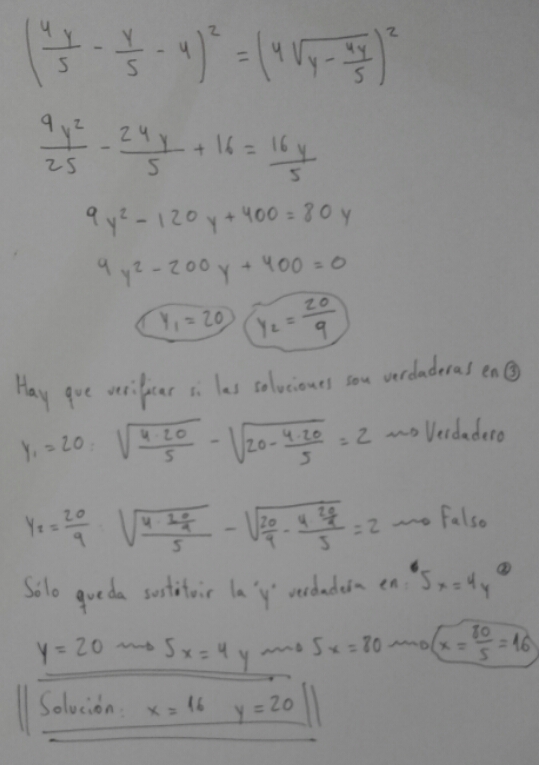 (4y/5 - y/5 - 4)² = (4√(y - 4y/5))²
9y²/25 - 24y/5 + 16 = 16y/5
9y² - 120y + 400 = 80y
9y² - 200y + 400 = 0
y₁ = 20 y₂ = 20/9
Hay que verificar si las soluciones son verdaderas en ③
y₁ = 20: √(4·20/5) - √(20 - 4·20/5) = 2 ⇝ Verdadero
y₂ = 20/9 √(4·20/9/5) - √(20/9 - 4·20/9/5) = 2 ⇝ Falso
Sólo queda sustituir la "y" verdadera en: 5x = 4y ②
y = 20 ⇝ 5x = 4y ⇝ 5x = 80 ⇝ x = 80/5 = 16
Solución: x = 16 y = 20